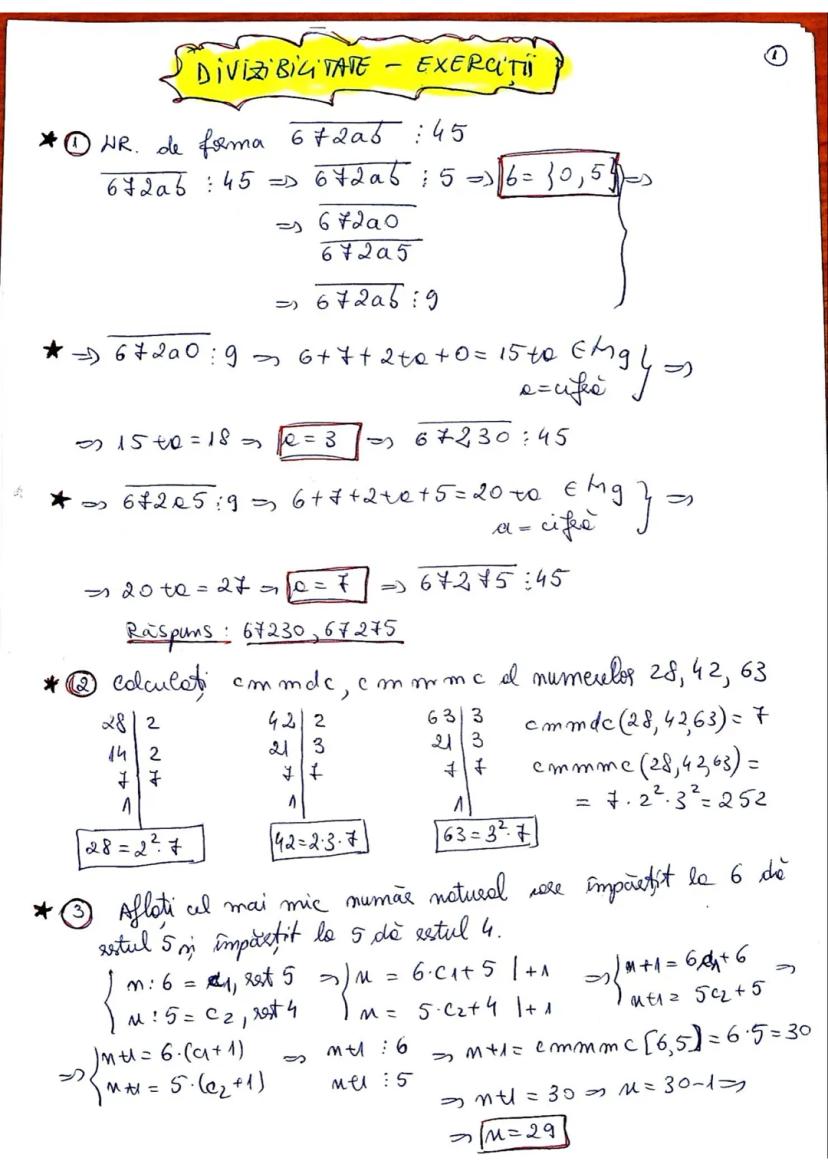 1
DIVIZIBILITATE – EXERCIȚII
★ 1 NR. de forma 672ab ⋮ 45
672ab ⋮ 45 => 672ab ⋮ 5 => b = {0,5} =>
=> 672a0
672a5
=> 672ab ⋮ 9
★ => 672a0 ⋮ 9 => 6+7+2+a+0 = 15+a ∈ M9 } =>
a = cifră
=> 15+a = 18 => a = 3 => 67230 ⋮ 45
★ => 672a5 ⋮ 9 => 6+7+2+a+5 = 20+a ∈ M9 } =>
a = cifră
=> 20+a = 27 => a = 7 => 67275 ⋮ 45
Răspuns: 67230, 67275
★ 2 Calculați cmmdc, cmmmc al numerelor 28, 42, 63
28 | 2 42 | 2 63 | 3 cmmdc (28,42,63) = 7
14 | 2 21 | 3 21 | 3
7 | 7 7 | 7 7 | 7 cmmmc (28,42,63) =
1 1 1 = 7·2²·3² = 252
28 = 2²·7 42 = 2·3·7 63 = 3²·7
★ 3 Aflați cel mai mic număr natural care împărțit la 6 dă
restul 5 și împărțit la 5 dă restul 4.
{ n : 6 = c1, rest 5 => { n = 6·c1+5 |+1 => { n+1 = 6c1+6 =>
n : 5 = c2, rest 4 n = 5·c2+4 |+1 n+1 = 5c2+5
=> { n+1 = 6·(c1+1) => n+1 ⋮ 6 => n+1 = cmmmc [6,5] = 6·5 = 30
n+1 = 5·(c2+1) n+1 ⋮ 5
=> n+1 = 30 => n = 30-1 =>
=> n = 29